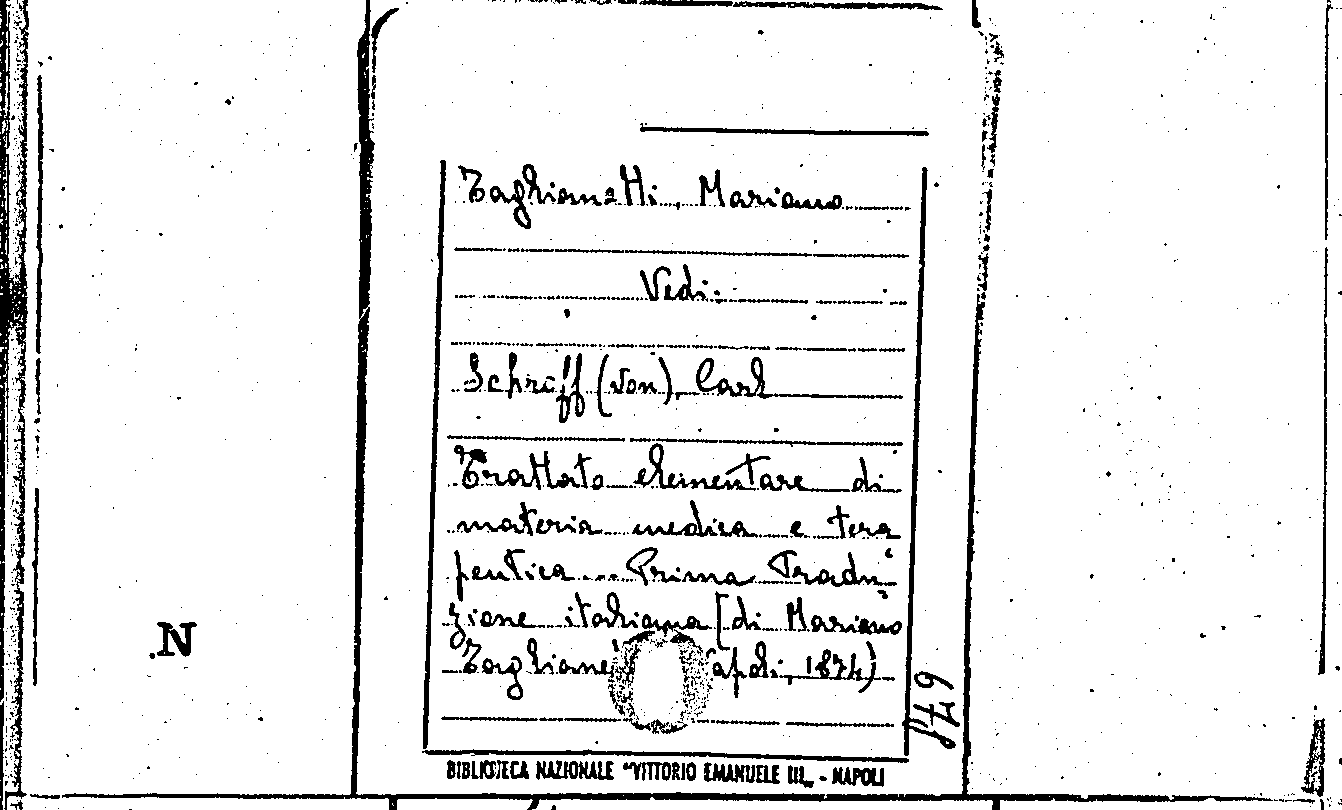 Taglianetti, Mariano
Vedi:
Schroff (von), Carl
Trattato elementare di
materia medica e tera
peutica... Prima Tradu-
zione italiana [di Mariano
Tagliane apoli, 1874)
BIBLIOTECA NAZIONALE "VITTORIO EMANUELE III„ - NAPOLI
N